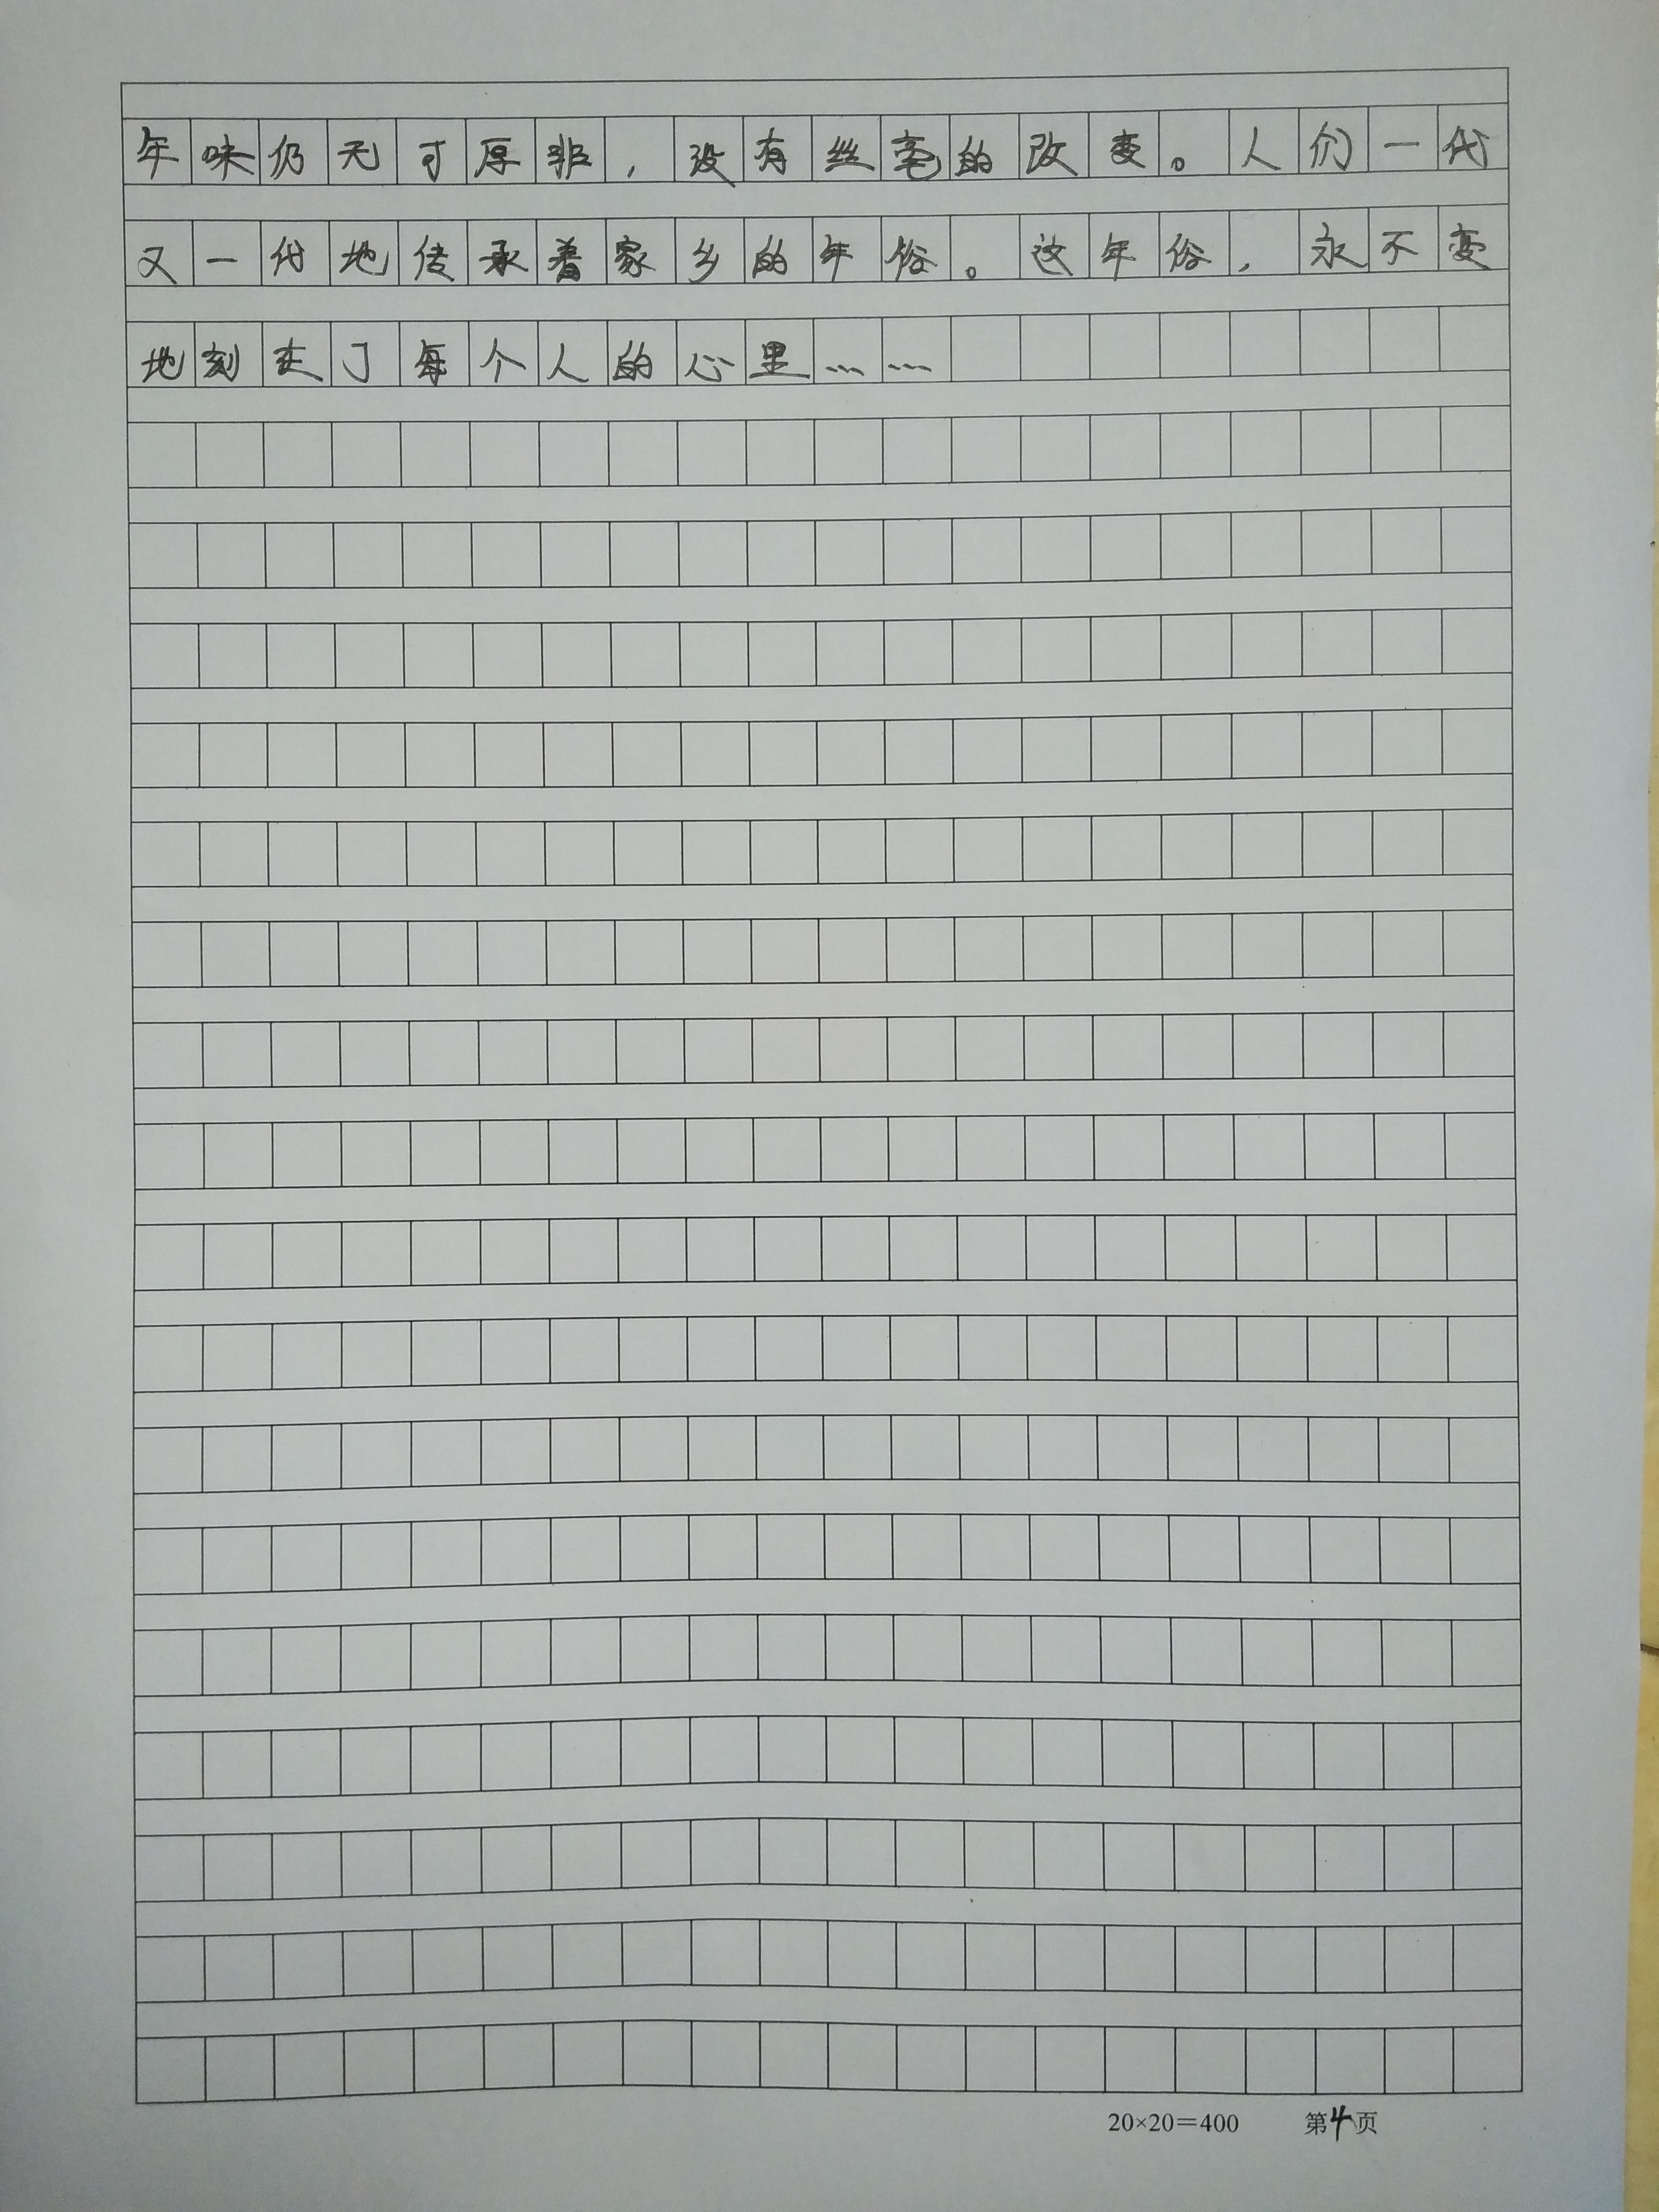 年味仍无可厚非，没有丝毫的改变。人们一代
又一代地传承着家乡的年俗。这年俗，永不变
地刻在了每个人的心里……
20×20=400 第4页